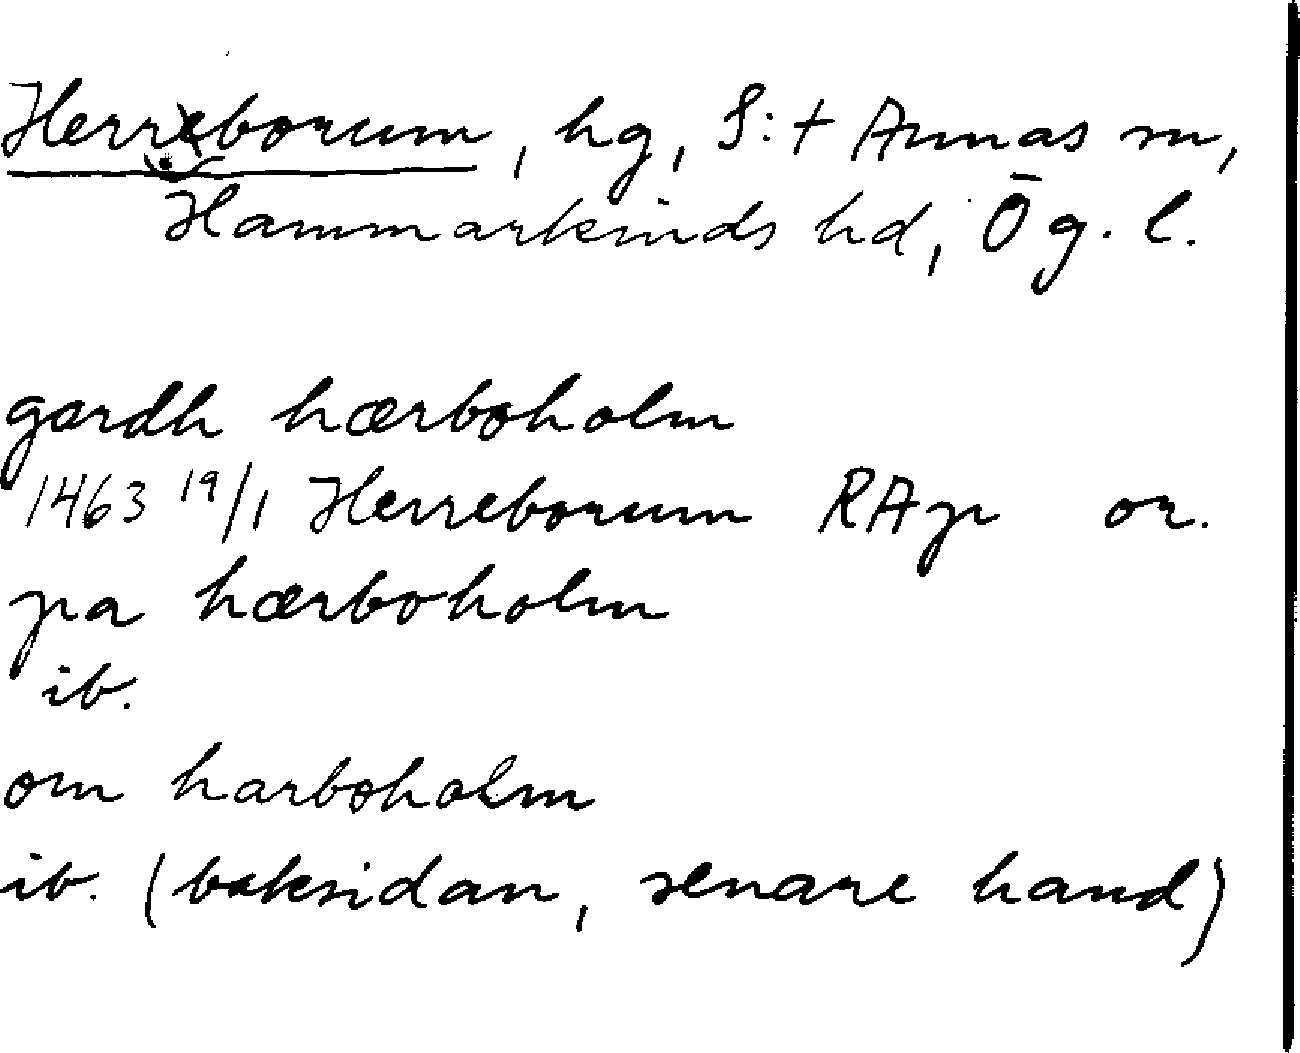 Herreborum, hg, S:t Annas sn,
Hammarkinds hd, Ög. l.
gardh hærboholm
1463 19/1 Herreborum RAp or.
pa hærboholm
ib.
om harboholm
ib. (baksidan, senare hand)